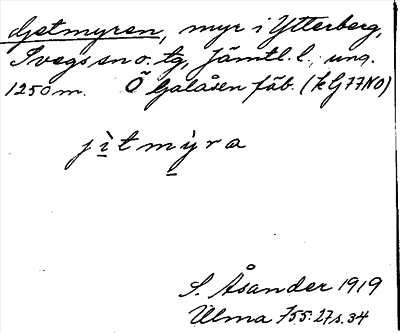 djetmyren, myr i Ytterberg,
Svegs sn o. tg, Jämtl. l., ung.
1250 m. Ö Galåsen fäb. (k G77NO)
jìtmỳra
S. Åsander 1919
Ulma 755:27 s. 34